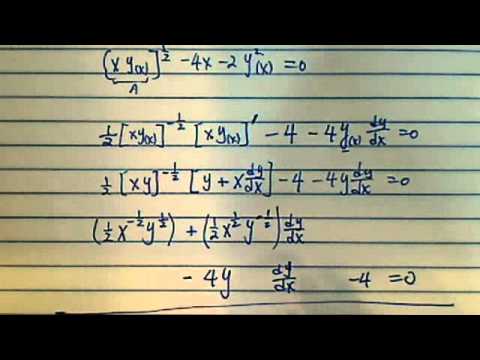 [x y(x)]^½ - 4x - 2y²(x) = 0
A
½ [xy(x)]^-½ [xy(x)]' - 4 - 4y(x) dy/dx = 0
½ [xy]^-½ [y + x dy/dx] - 4 - 4y dy/dx = 0
(½ x^-½ y^½) + (½ x^½ y^-½) dy/dx
- 4y dy/dx - 4 = 0